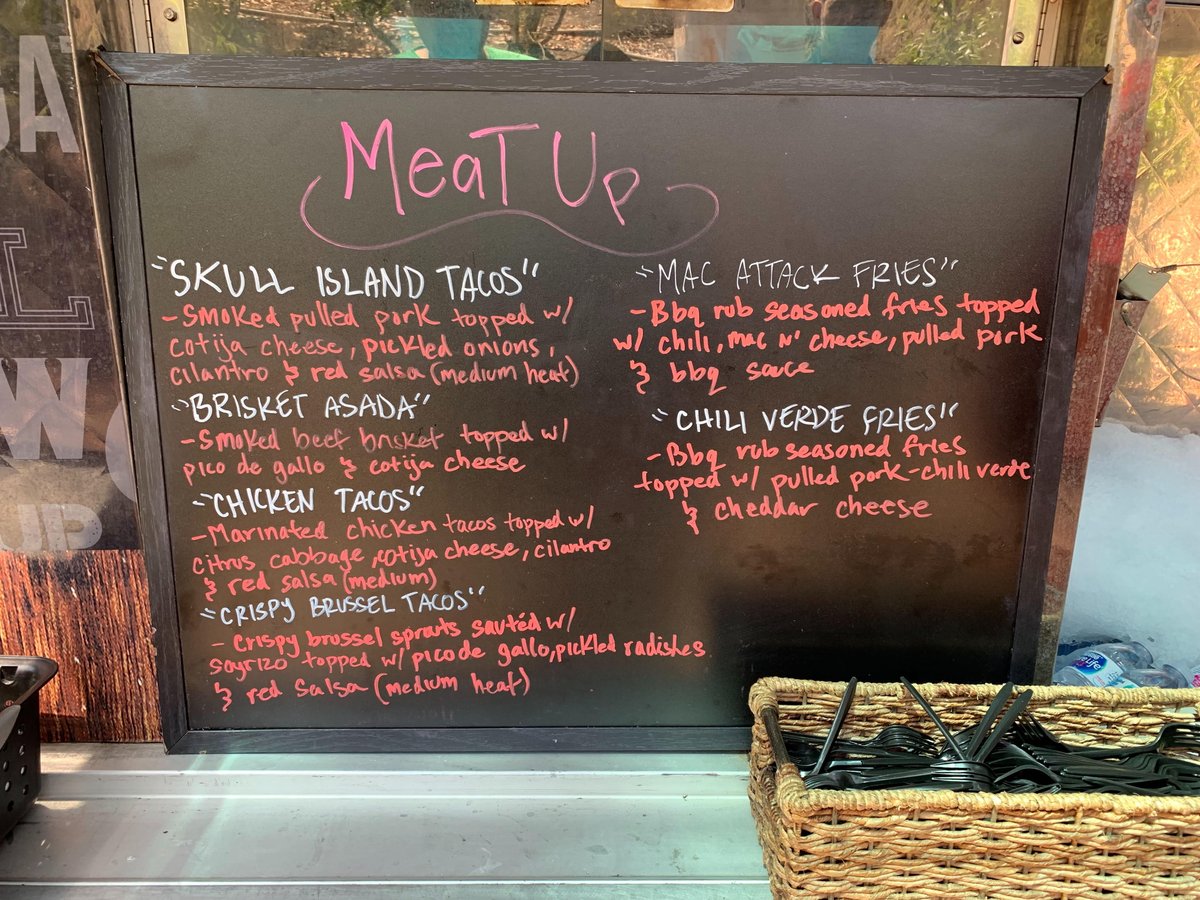 MeaT Up
"SKULL ISLAND TACOS"
- Smoked pulled pork topped w/
cotija cheese, pickled onions,
cilantro & red salsa (medium heat)
"BRISKET ASADA"
- Smoked beef brisket topped w/
pico de gallo & cotija cheese
"CHICKEN TACOS"
- Marinated chicken tacos topped w/
citrus cabbage, cotija cheese, cilantro
& red salsa (medium)
"CRISPY BRUSSEL TACOS"
- Crispy brussel sprouts sautéd w/
soyrizo topped w/ pico de gallo, pickled radishes
& red salsa (medium heat)
"MAC ATTACK FRIES"
- Bbq rub seasoned fries topped
w/ chili, mac N' cheese, pulled pork
& bbq sauce
"CHILI VERDE FRIES"
- Bbq rub seasoned fries
topped w/ pulled pork-chili verde
& cheddar cheese
UP